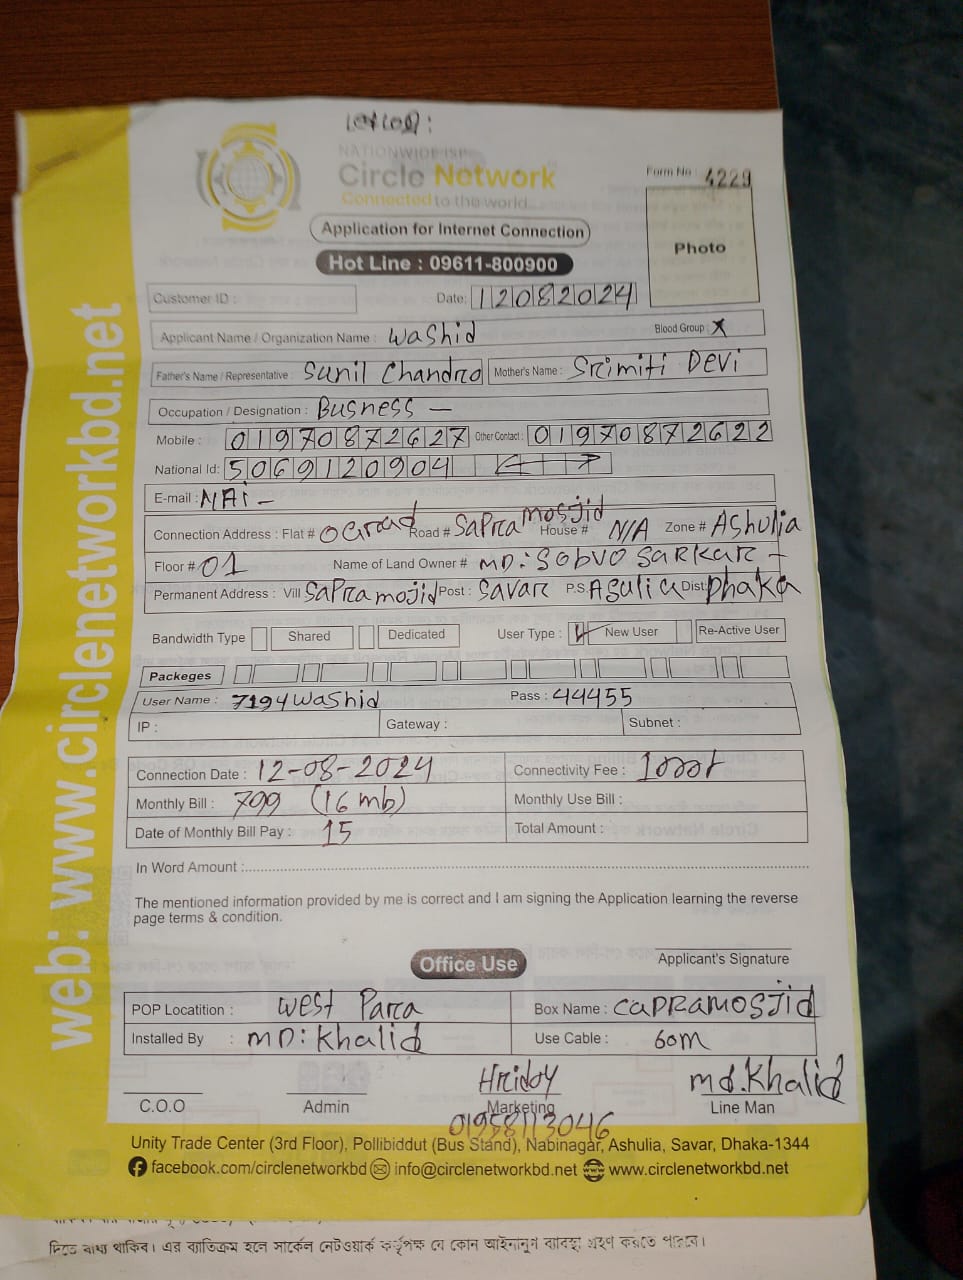 NATIONWIDE ISP
Circle Network
Connected to the world...
Form No : 4229
Application for Internet Connection
Photo
Hot Line : 09611-800900
Customer ID :
Date: 12082024
Applicant Name / Organization Name : Washid
Blood Group : X
Father's Name / Representative : Sunil Chandro Mother's Name : Srimiti Devi
Occupation / Designation : Busness —
Mobile : 01970872627 Other Contact : 01970872622
National Id: 5069120904
E-mail : NAi -
Connection Address : Flat # Road # Sapra mosjid House # N/A Zone # Ashulia
Floor # 01 Name of Land Owner # MD: Sobvo Sarkar -
Permanent Address : Vill Sapra mojid Post : Savar P.S. Asulia Dist: Dhaka
Bandwidth Type Shared Dedicated User Type : New User Re-Active User
Packeges
User Name : 7194washid Pass : 44455
IP : Gateway : Subnet :
Connection Date : 12-08-2024 Connectivity Fee :
Monthly Bill : 799 (16 mb) Monthly Use Bill :
Date of Monthly Bill Pay : 15 Total Amount :
In Word Amount :
The mentioned information provided by me is correct and I am signing the Application learning the reverse
page terms & condition.
Office Use
Applicant's Signature
POP Locatition : West Parra Box Name : CapRAMOSJid
Installed By : MD: Khalid Use Cable : 60m
Hridoy md. Khalid
C.O.O Admin Marketing Line Man
01958113046
Unity Trade Center (3rd Floor), Pollibiddut (Bus Stand), Nabinagar, Ashulia, Savar, Dhaka-1344
facebook.com/circlenetworkbd info@circlenetworkbd.net www.circlenetworkbd.net
web: www.circlenetworkbd.net
দিতে বাধ্য থাকিব। এর ব্যতিক্রম হলে সার্কেল নেটওয়ার্ক কর্তৃপক্ষ যে কোন আইনানুগ ব্যবস্থা গ্রহণ করতে পারবে।